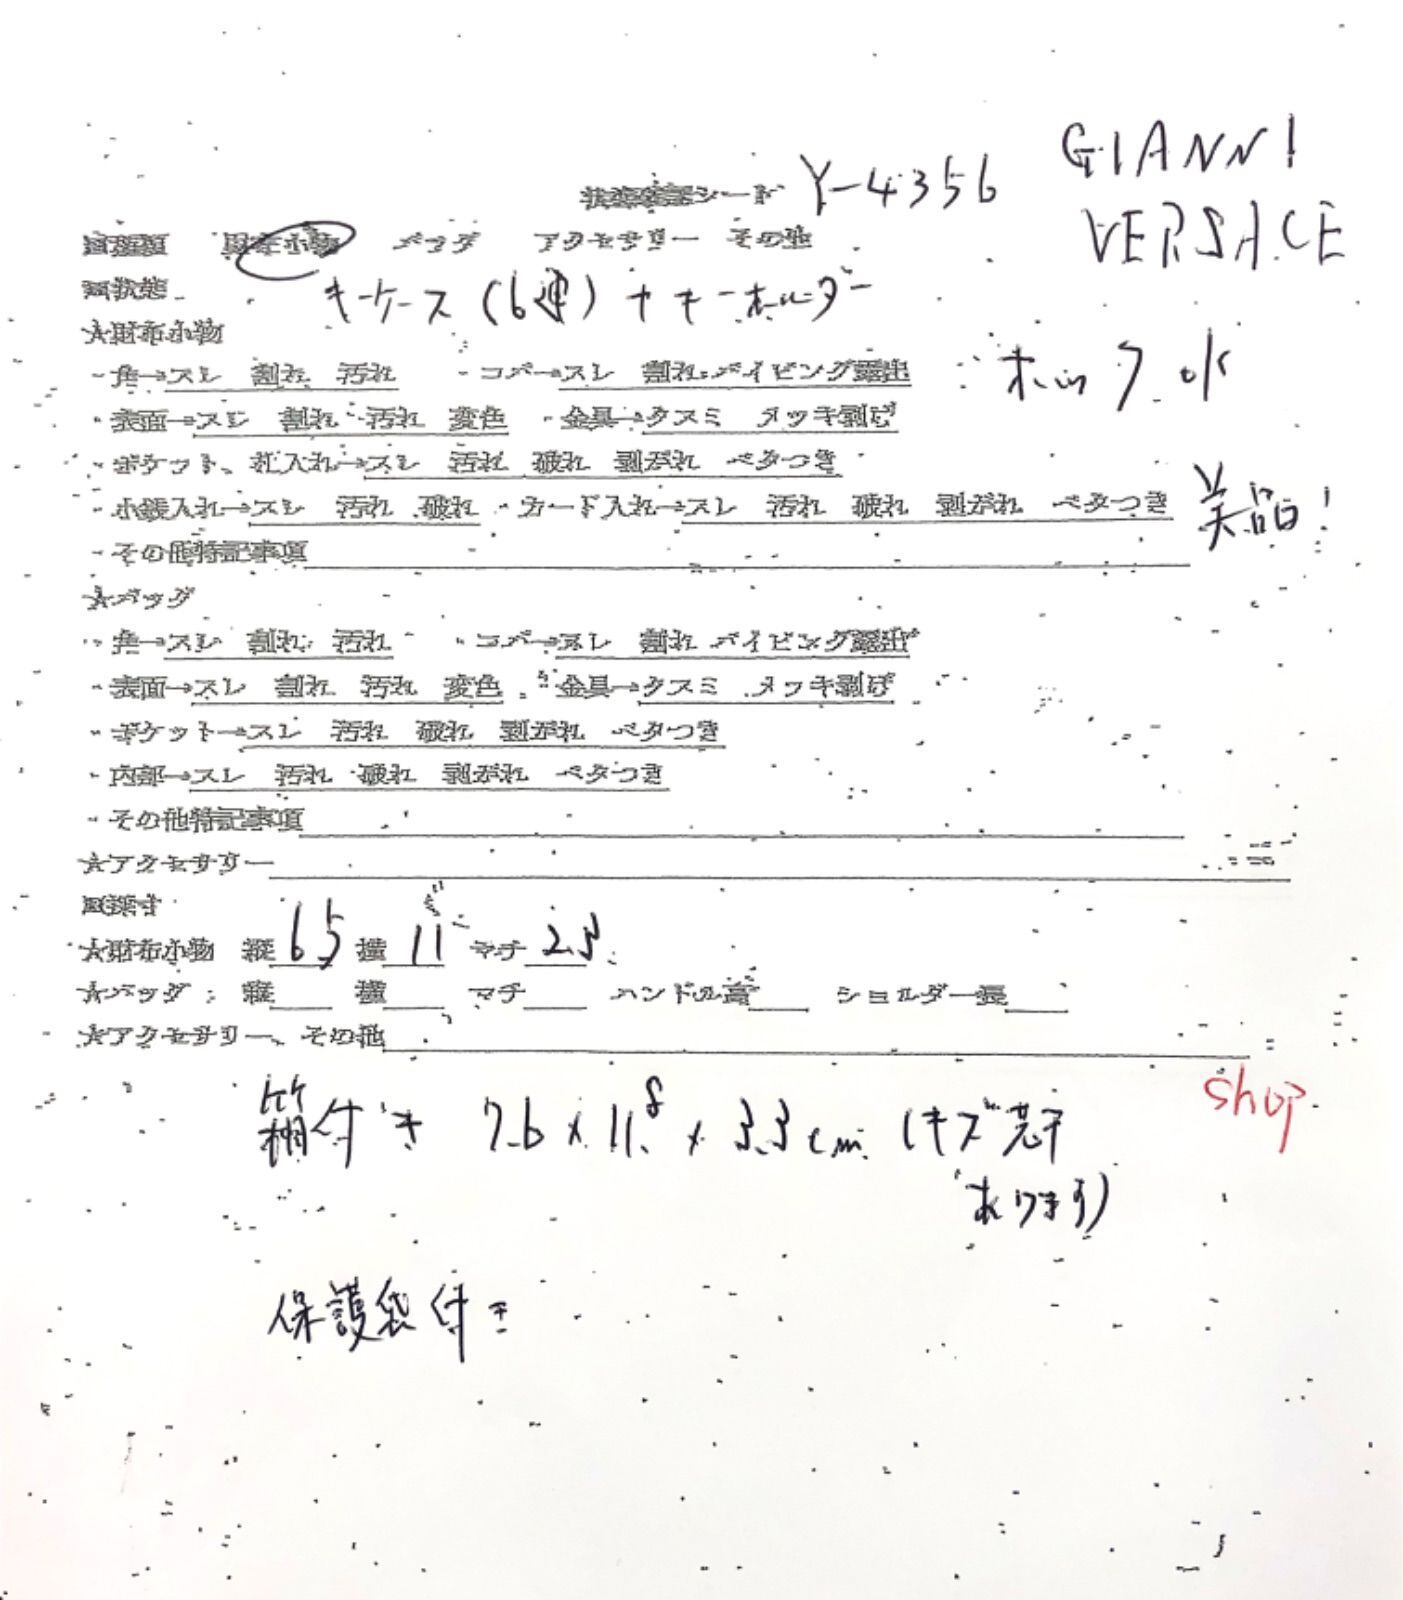 状態確認シート Y-4356
GIANNI
VERSACE
□種類 財布小物 バッグ アクセサリー その他
□状態 キーケース(6連)+キーホルダー
★財布小物
ホック ok
・角→スレ 割れ 汚れ ・コバ→スレ 割れ パイピング露出
・表面→スレ 割れ 汚れ 変色 ・金具→クスミ メッキ剥げ
・ポケット、札入れ→スレ 汚れ 破れ 剥がれ ベタつき
・小銭入れ→スレ 汚れ 破れ ・カード入れ→スレ 汚れ 破れ 剥がれ ベタつき
美品!
・その他特記事項
★バッグ
・角→スレ 割れ 汚れ ・コバ→スレ 割れ パイピング露出
・表面→スレ 割れ 汚れ 変色 ・金具→クスミ メッキ剥げ
・ポケット→スレ 汚れ 破れ 剥がれ ベタつき
・内部→スレ 汚れ 破れ 剥がれ ベタつき
・その他特記事項
★アクセサリー
□採寸
★財布小物 縦 6.5 横 11 マチ 2.5
★バッグ 縦 横 マチ ハンドル高 ショルダー長
★アクセサリー、その他
shop
箱付き 7.6×11.8×3.3cm (キズ若干
あります)
保護袋付き